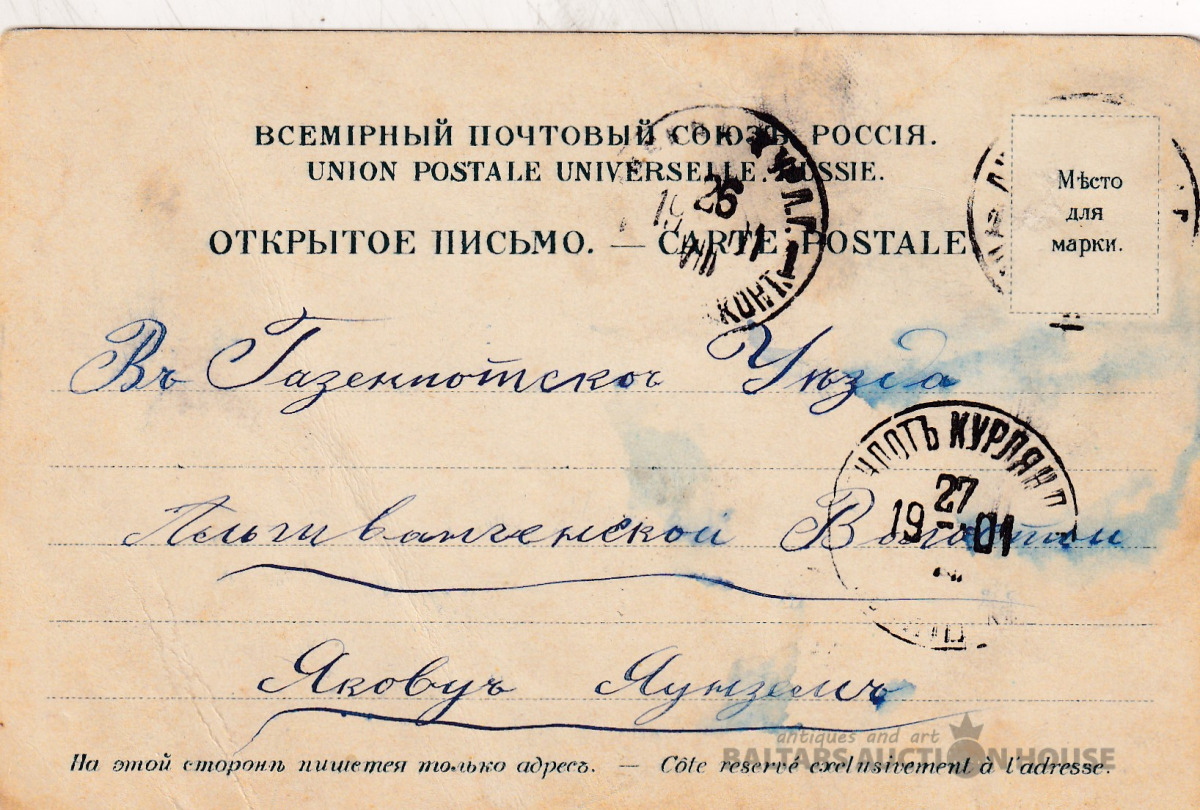 ВСЕМІРНЫЙ ПОЧТОВЫЙ СОЮЗЪ. РОССІЯ.
UNION POSTALE UNIVERSELLE. RUSSIE.
ОТКРЫТОЕ ПИСЬМО. — CARTE POSTALE
Мѣсто
для
марки.
26
19 01
VIII
КОНТ.
Въ Газенпотскос Уѣзда
ПОТЪ КУРЛЯНД
27
19 01
Волости
Яковуъ Яунземъ
На этой сторонѣ пишется только адресъ. — Côte reservé exclusivement à l'adresse.
antiques and art
BALTARS AUCTION HOUSE